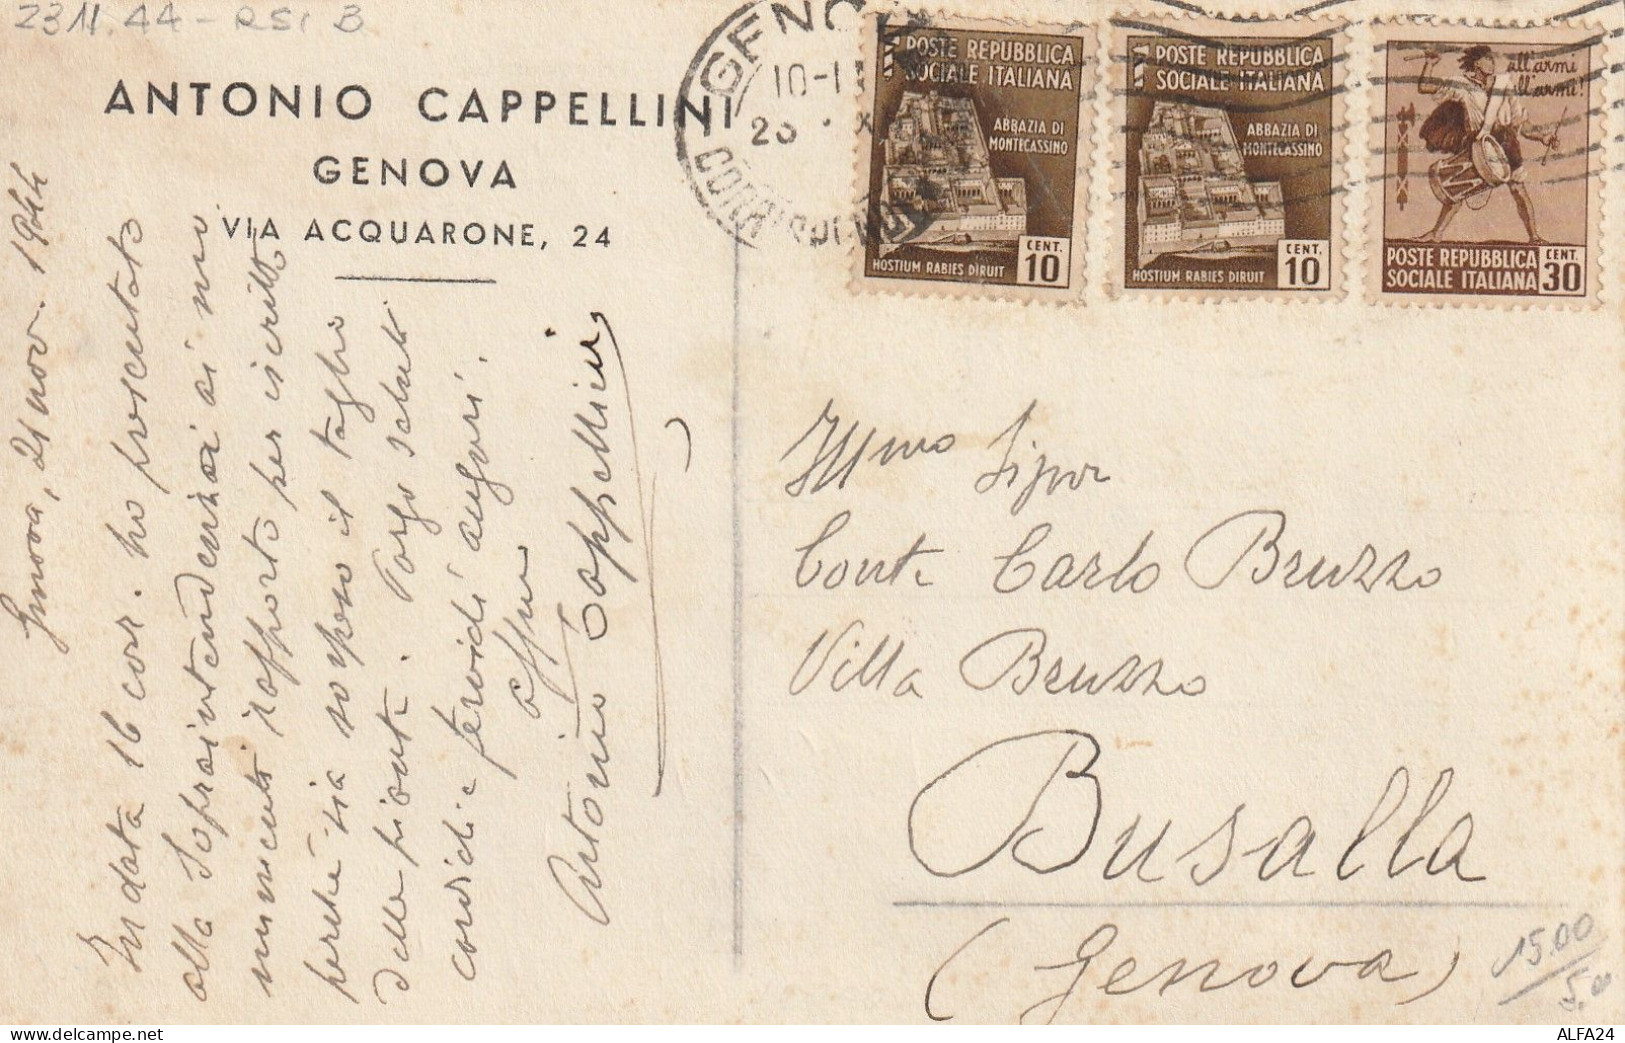 23.11.44 - RSI B
ANTONIO CAPPELLINI
GENOVA
VIA ACQUARONE, 24
GENOVA
10-1
CORRISPONDENZE
POSTE REPUBBLICA
SOCIALE ITALIANA
ABBAZIA DI
MONTECASSINO
CENT.
HOSTIUM RABIES DIRUIT 10
POSTE REPUBBLICA
SOCIALE ITALIANA
ABBAZIA DI
MONTECASSINO
CENT.
HOSTIUM RABIES DIRUIT 10
all'armi
all'armi!
POSTE REPUBBLICA CENT.
SOCIALE ITALIANA 30
Genova, 21 nov. 1944
In data 16 cor. ho presentato
alla Sopraintendenza ai mo
numenti rapporto per iscritto
perché sia sospeso il taglio
delle piante. Porgo saluti
cordiali e fervidi auguri.
aff.mo
Antonio Cappellini
Ill.mo Signor
Conte Carlo Bruzzo
Villa Bruzzo
Busalla
(Genova)
15.00
5.00
ALFA24